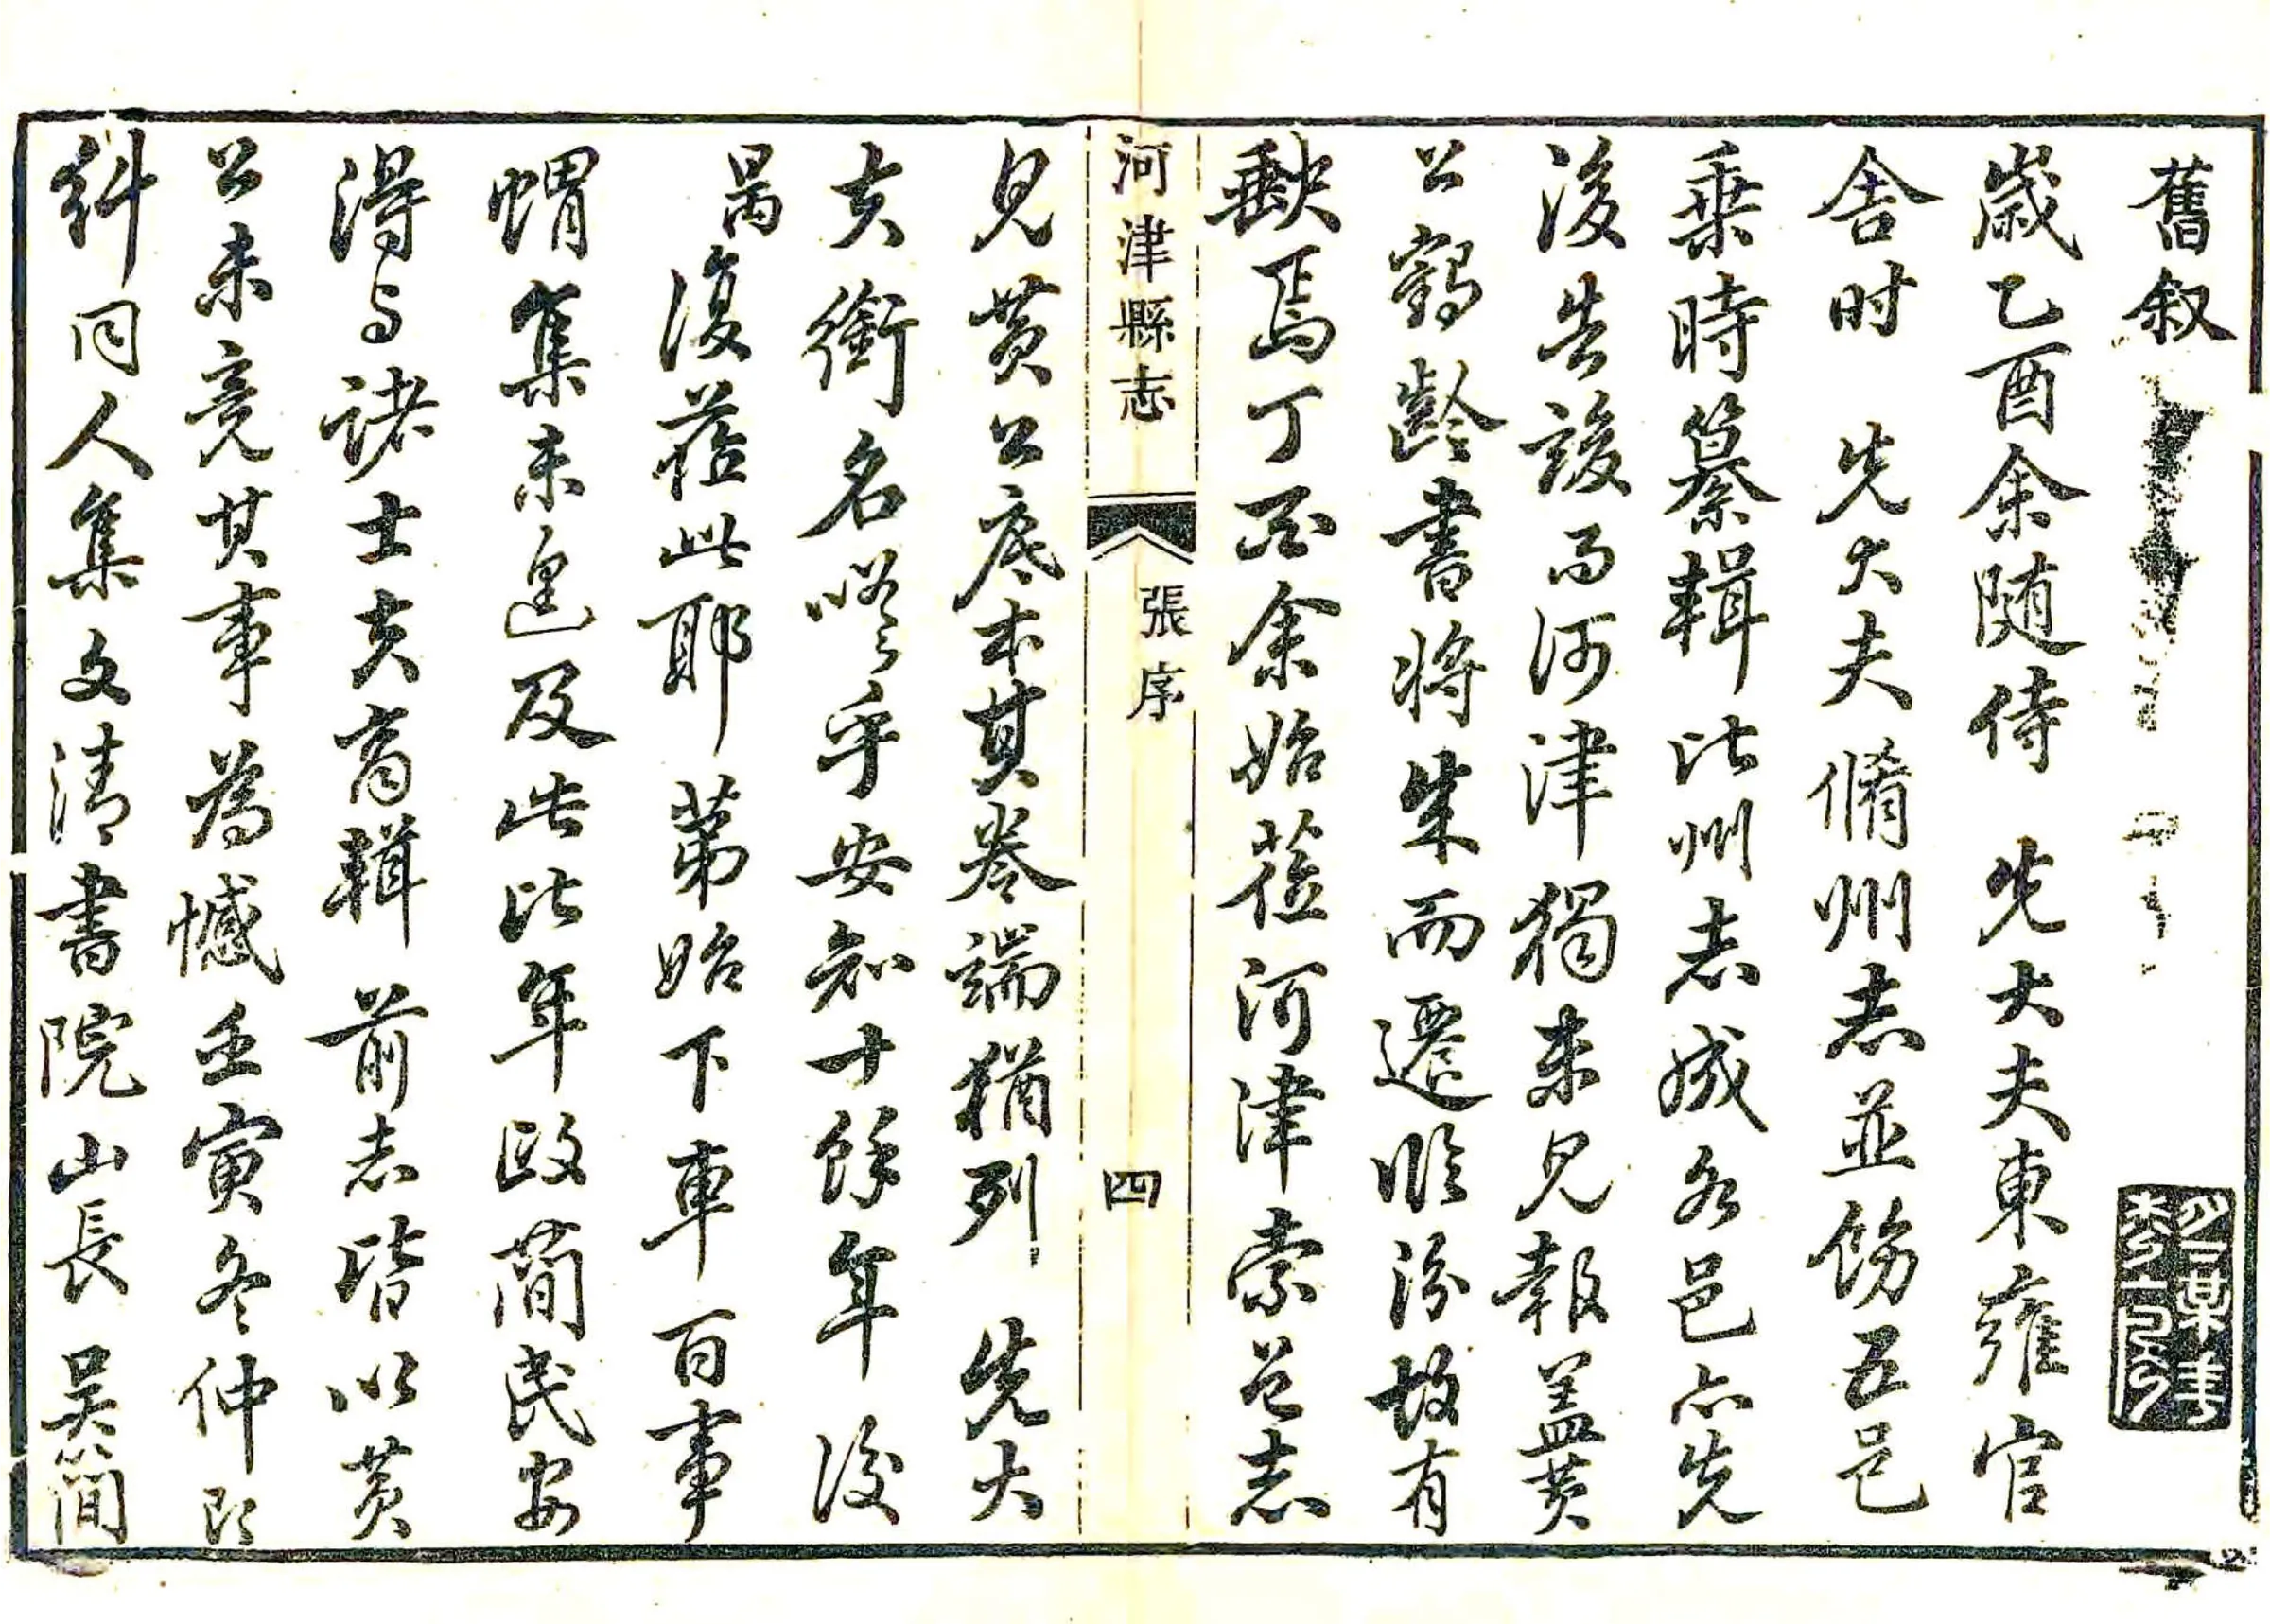 舊叙
歲乙酉余随侍 先大夫東雍官
舍时 先大夫脩州志並飭五邑
乗時纂輯比州志成各邑亦先
後告竣而河津獨未見報蓋黄
公鶴齡書將成而遷臨汾故有
缺焉丁酉余始蒞河津索邑志
河津縣志
張序
四
見黄公底本其卷端猶列 先大
夫銜名嗟乎安知十餘年後
咼復蒞此耶第始下車百事
蝟集未遑及此比年政簡民安
得与諸士夫商輯前志皆以黄
公未竟其事為憾壬寅冬仲即
糾同人集文清書院山長吴簡